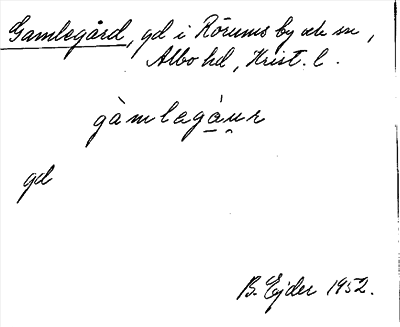 Gamlegård, gd i Rörums by och sn,
Albo hd, Krist. l.
gàmlagáu̯r
gd
B. Ejder 1952.